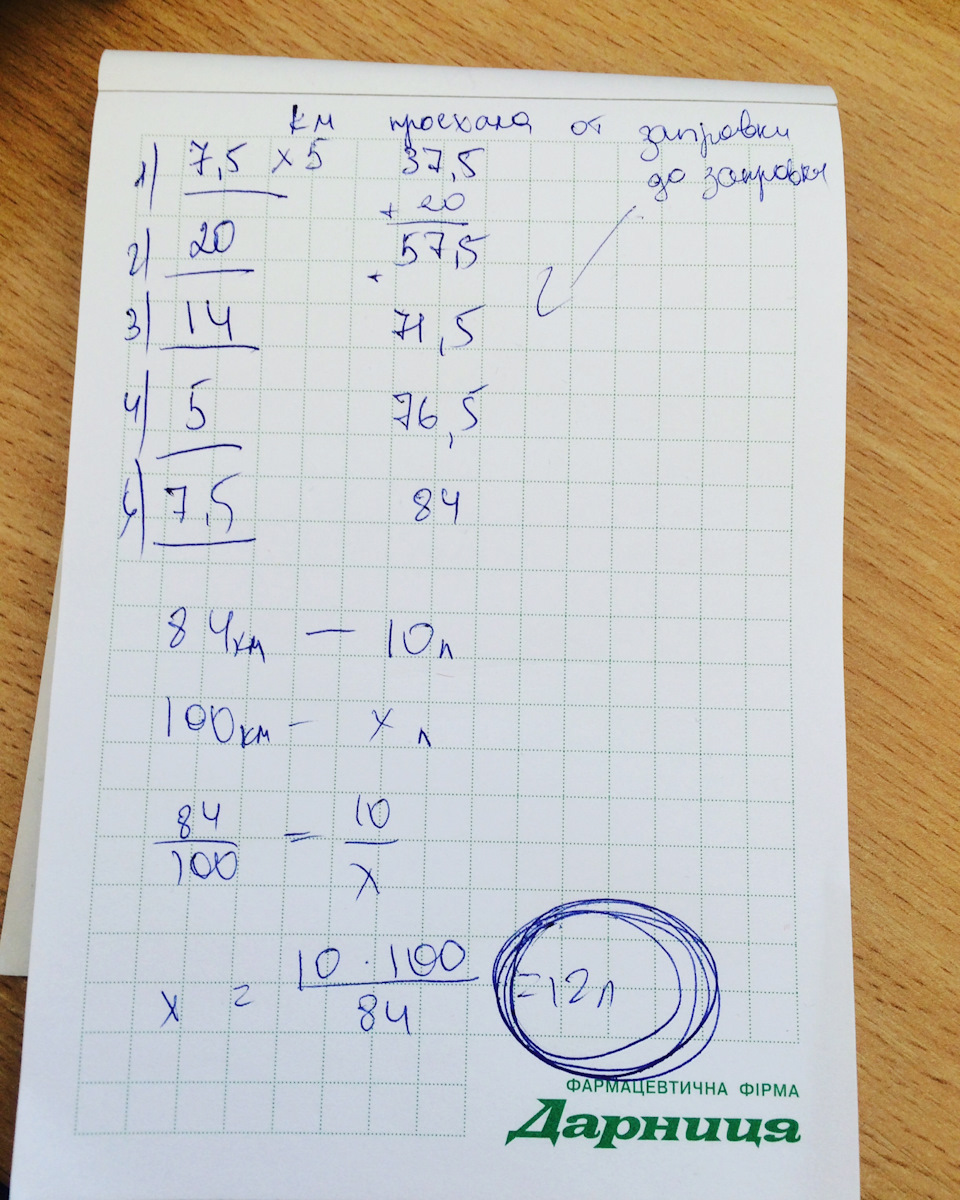 км проехала от заправки
до заправки
1) 7,5 x 5 37,5
+ 20
2) 20 57,5
+
3) 14 71,5
4) 5 76,5
5) 7,5 84
84 км — 10 л
100 км - x л
84/100 = 10/x
x = 10 · 100/84 = 12 л
ФАРМАЦЕВТИЧНА ФІРМА
Дарниця